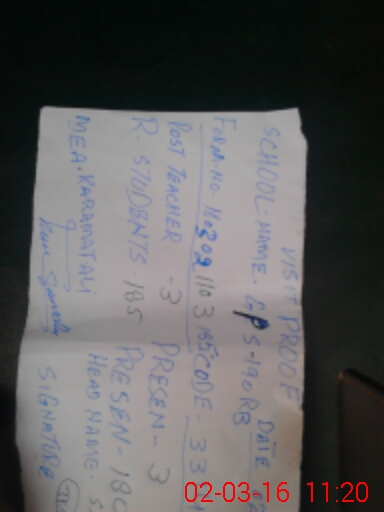 VISIT PROOF
SCHOOL-NAME. GPS-190RB DATE
FORM.NO. 1103 BSCODE. 33
POST TEACHER -3 PRESEN-3
R. STUDENTS-185 PRESEN-180
MEA.KARAMATALI HEAD NAME.
SIGNATURE
02-03-16 11:20